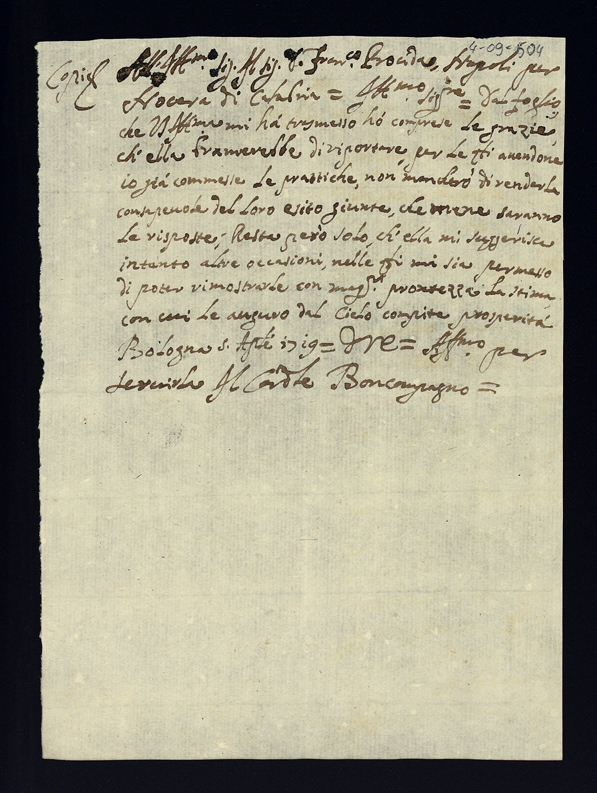 4-09-504
Copia All' Illmo Sig. Il Sig. D. Franco Procida, Napoli per
Nocera di Calabria = Illmo Sigre = Da foglio,
che VS Illma mi há trasmesso hó comprese le grazie,
ch' ella bramerebbe di riportare, per le qti avendone
io già commesse le prattiche, non mancheró di renderla
consapevole del loro esito giunte, che mene saranno
le risposte; Resta però solo, ch' ella mi suggerisca
intanto altre occasioni, nelle qli mi sia permesso
di poter rimostrarle con maggr prontezza la stima
con cui le auguro dal Cielo compite prosperità
Bologna 5. Aple 1719 = = Affmo per
servirla Il Cardle Boncompagno =